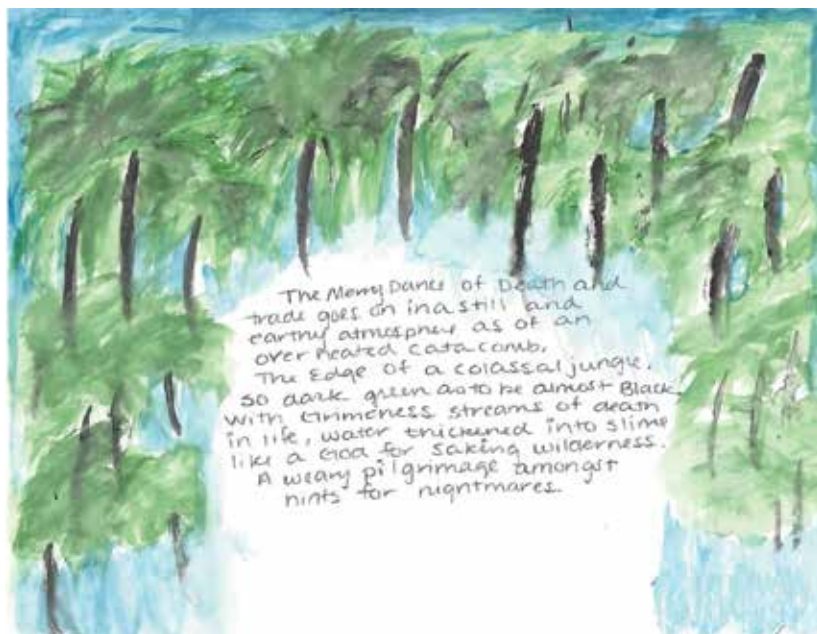 The Merry Dance of Death and
trade goes on in a still and
earthy atmosphey as of an
over heated catacomb.
The Edge of a colossal jungle.
so dark green as to be almost Black.
With Grimeness streams of death
in life, water thickened into slime
like a God for saking wilderness.
A weary pilgrimage amongst
hints for nightmares.